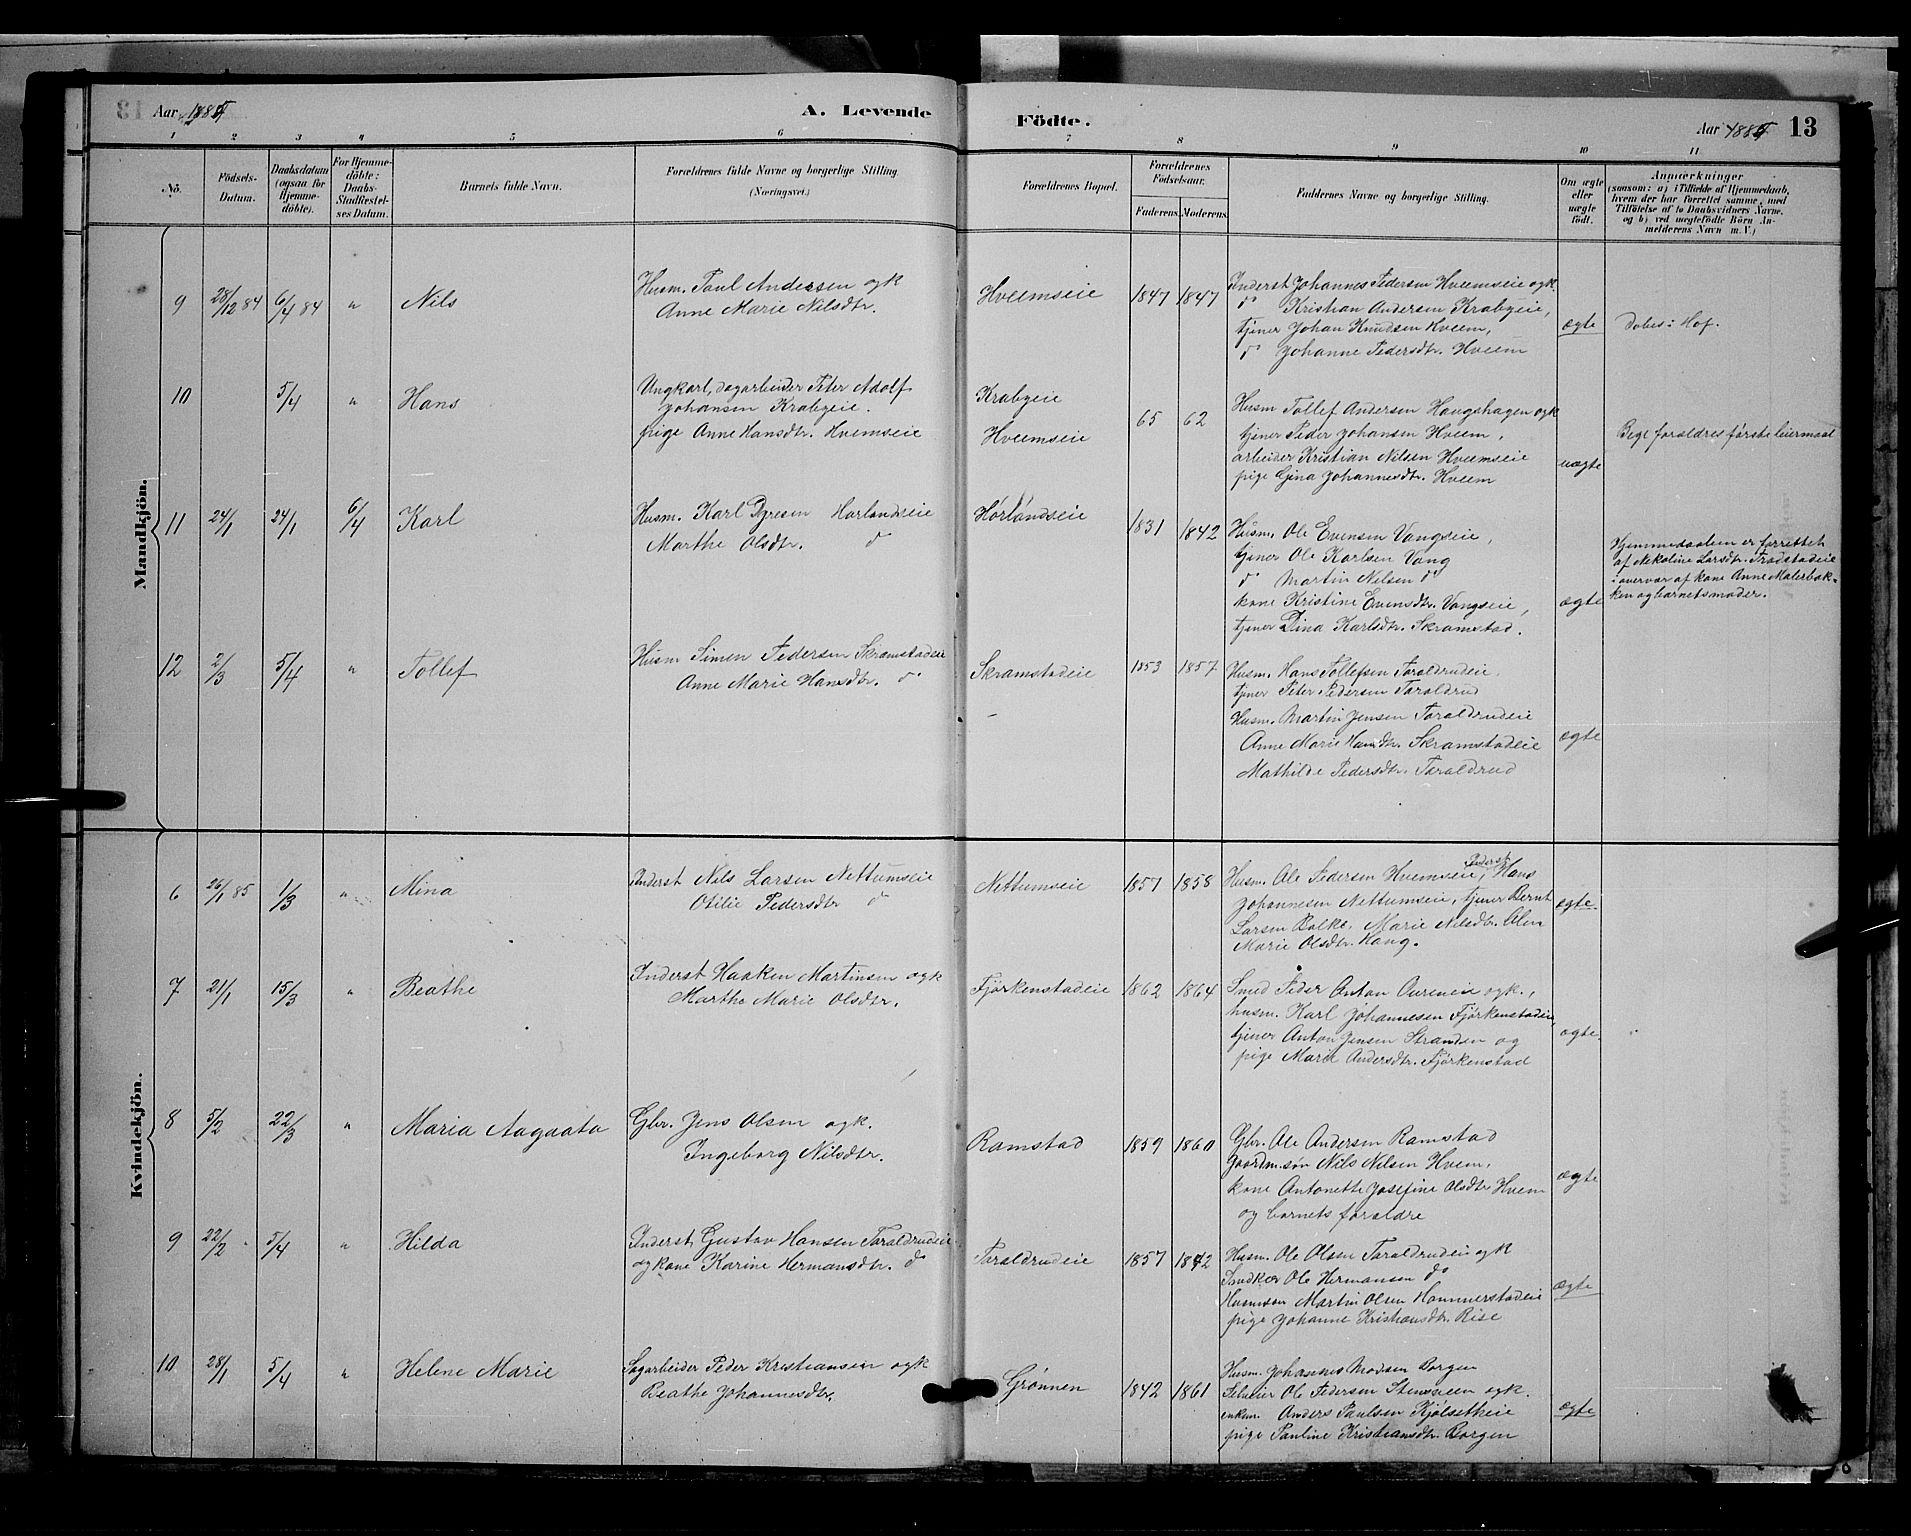 Aar 1885
A. Levende
Födte.
Aar 1885
13
1
2
3
4
5
6
7
8
9
10
11
No.
Födsels-
Datum.
Daabsdatum
(ogsaa for
Hjemme-
döbte).
For Hjemme-
döbte:
Daabs-
Stadfæstel-
ses Datum.
Barnets fulde Navn.
Forældrenes fulde Navne og borgerlige Stilling
(Næringsvei.)
Forældrenes Bopæl.
Forældrenes
Födselsaar.
Faderens.
Moderens.
Faddernes Navne og borgerlige Stilling.
Om ægte
eller
uægte
födt.
Anmærkninger
(saasom: a) i Tilfælde af Hjemmedaab,
hvem der har forrettet samme, med
Tilföielse af to Daabsvidners Navne,
og b) ved uægtefödte Börn An-
melderens Navn m. V.)
Mandkjön.
9
28/12 84
6/4 84
"
Nils
Husm. Paul Andersen ogk
Anne Marie Nilsdtr.
Hveemseie
1847
1847
Inderst Johannes Pedersen Hveemseie ogk
do Kristian Andersen Krabyeie,
tjener Johan Knudsen Hveem,
do Johanne Pedersdtr. Hveem
ægte
Døbes i Hof.
10
5/4
"
Hans
Ungkarl, dagarbeider Peter Adolf
Johansen Krabyeie.
pige Anne Hansdtr. Hvemseie
Krabyeie
Hveemseie
65
62
Husm Tollef Andersen Haugshagen ogk
tjener Peder Johansen Hveem,
arbeider Kristian Nilsen Hveemseie
pige Gina Johannesdtr. Hveem
uægte
Bege foraldres første leiermaal
11
24/1
24/1
6/4
Karl
Husm. Karl Dyresen Hørlandseie
Marthe Olsdtr. do
Hørlandseie
1831
1842
Husm. Ole Evensen Vangseie,
tjener Ole Karlsen Vang
do Martin Nilsen do
kone Kristine Evensdtr. Vangseie,
tjener Dina Karlsdtr. Skramstad.
ægte
Hjemmedaaben er forrettet
af Nekoline Larsdtr. Fradstadeie
i overvær af kone Anne Malerbak-
ken og barnets moder.
12
2/3
5/4
"
Tollef
Husm Simen Pedersen Skramstadeie
Anne Marie Hansdtr. do
Skramstadeie
1853
1857
Husm. Hans Tollefsen Taraldrudeie,
tjener Peter Pedersen Taraldrud
Husm. Martin Jensen Taraldrudeie
Anne Marie Hansdtr. Skramstadeie
Mathilde Pedersdtr. Taraldrud
ægte
Kvindekjön.
6
26/1 85
1/3
"
Mina
Inderst Nils Larsen Nettumseie
Otilie Pedersdtr do
Nettumseie
1857
1858
Husm. Ole Pedersen Hvemseie, Inderst Hans
Johannesen Nettumseie, tjener Bernt
Larsen Balke, Marie Nilsdtr. Olen
Marie Olsdtr. Haug.
ægte.
7
21/1
15/3
"
Beathe
Inderst Haaken Martinsen ogk
Marthe Marie Olsdtr.
Fjørkenstadeie
1862
1864
Smed Peder Anton Aureneie ogk.,
husm. Karl Johannesen Fjørkenstadeie,
tjener Anton Jensen Stranden og
pige Marie Andersdtr. Fjørkenstad
ægte.
8
5/2
22/3
"
Maria Aagaata
Gbr. Jens Olsen ogk.
Ingeborg Nilsdtr.
Ramstad
1859
1860
Gbr. Ole Andersen Ramstad
gaardm.søn Nils Nilsen Hvem,
kone Antonette Josefine Olsdtr Hvem
og barnets foraldre
ægte
9
22/2
5/4
"
Hilda
Inderst Gustav Hansen Taraldrudeie
og kone Karine Hermansdtr. do
Taraldrudeie
1857
1842
Husm. Ole Olsen Taraldrudeie ogk
Snedker Ole Hermansen do
Husmsøn Martin Olsen Hammerstadeie
pige Johanne Kristiansdtr. Rise
ægte
10
28/1
5/4
"
Helene Marie
Dagarbeider Peder Kristiansen ogk
Beathe Johannesdtr.
Grønnen
1842
1861
Husm. Johannes Madsen Borgen
Selveier Ole Pedersen Stensveen ogk.
enkem. Anders Paulsen Kjølsetheie
pige Pauline Kristiansdtr. Borgen
ægte